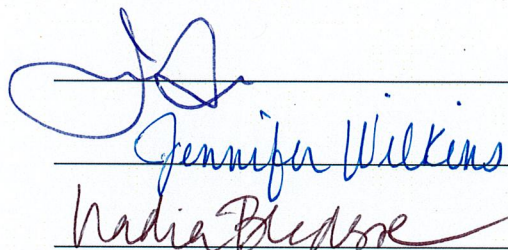 Jennifer Wilkins
Nadia Bledsoe